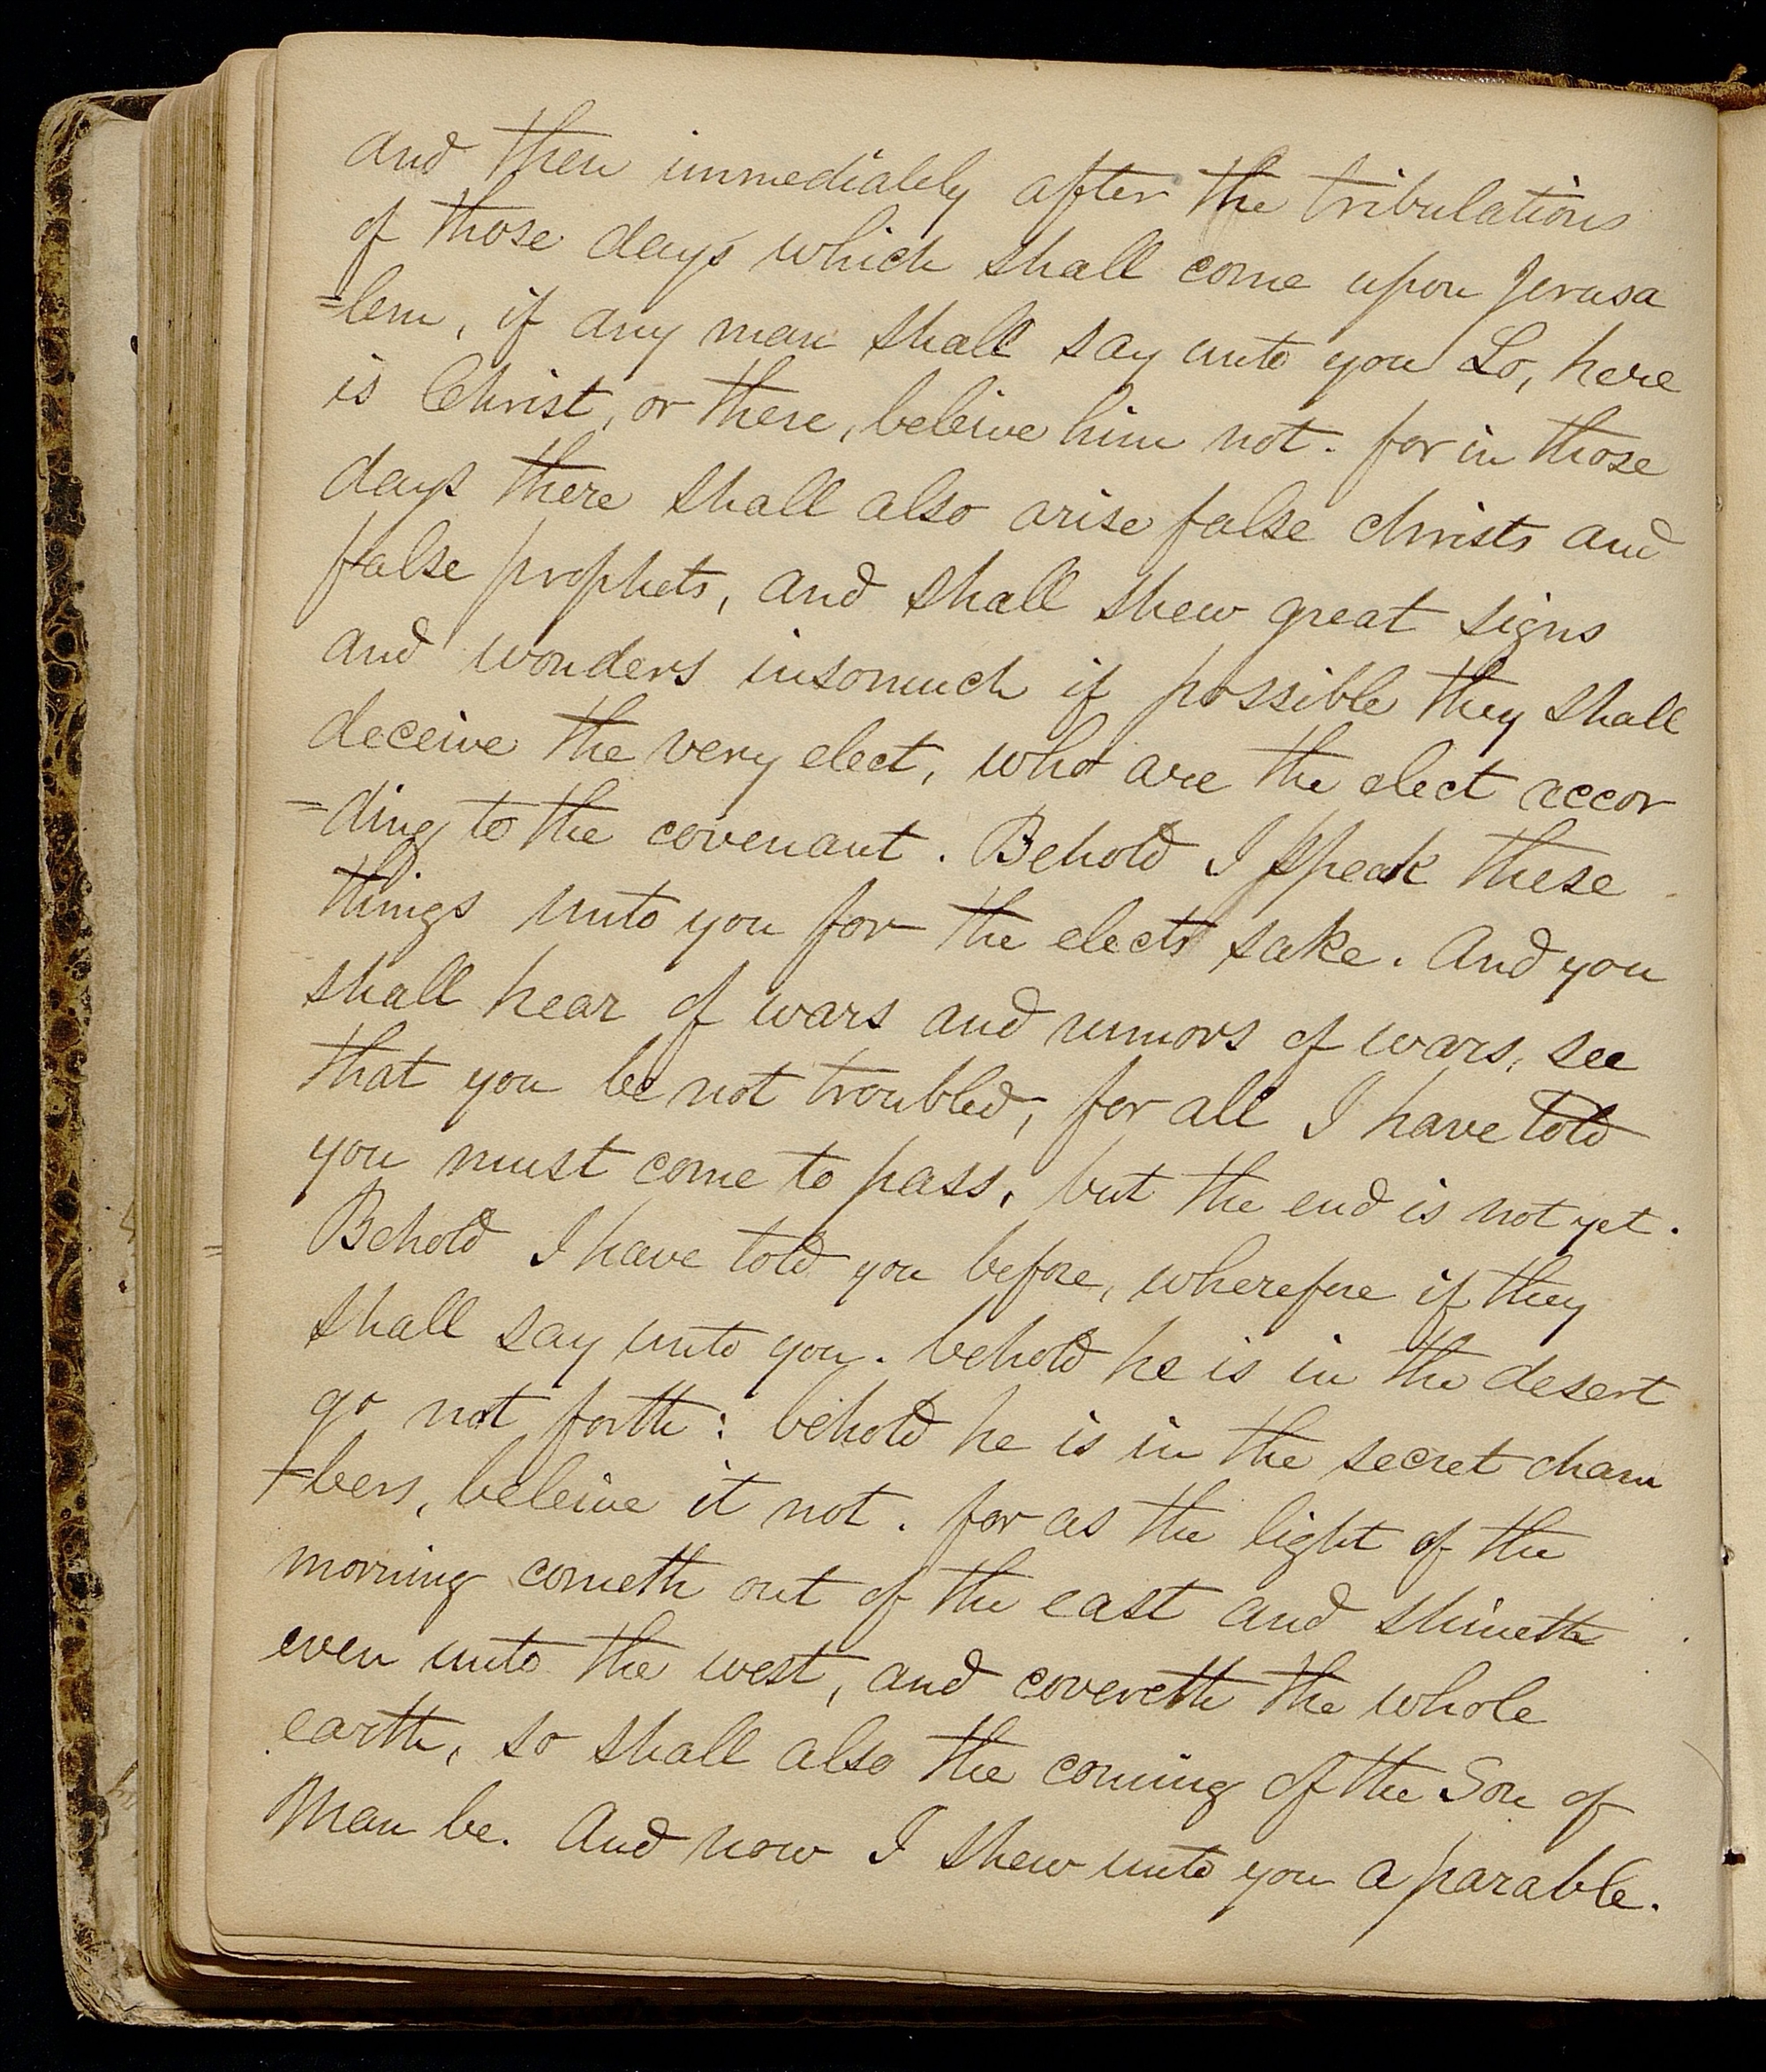 and then immediately after the tribulations
of those days which shall come upon Jerusa
=lem, if any man shall say unto you Lo, here
is Christ, or there, beleive him not. for in those
days there shall also arise false christs and
false prophets, and shall shew great signs
and wonders insomuch if possible they shall
deceive the very elect, who are the elect accor
=ding to the covenant. Behold I speak these
things unto you for the elects sake. And you
shall hear of wars and rumors of wars, see
that you be not troubled, for all I have told
you must come to pass, but the end is not yet.
Behold I have told you before, wherefore if they
shall say unto you. behold he is in the desert
go not forth: behold he is in the secret cham
=bers, beleive it not. for as the light of the
morning cometh out of the east and shineth
even unto the west, and covereth the whole
earth, so shall also the coming of the Son of
Man be. And now I shew unto you a parable.